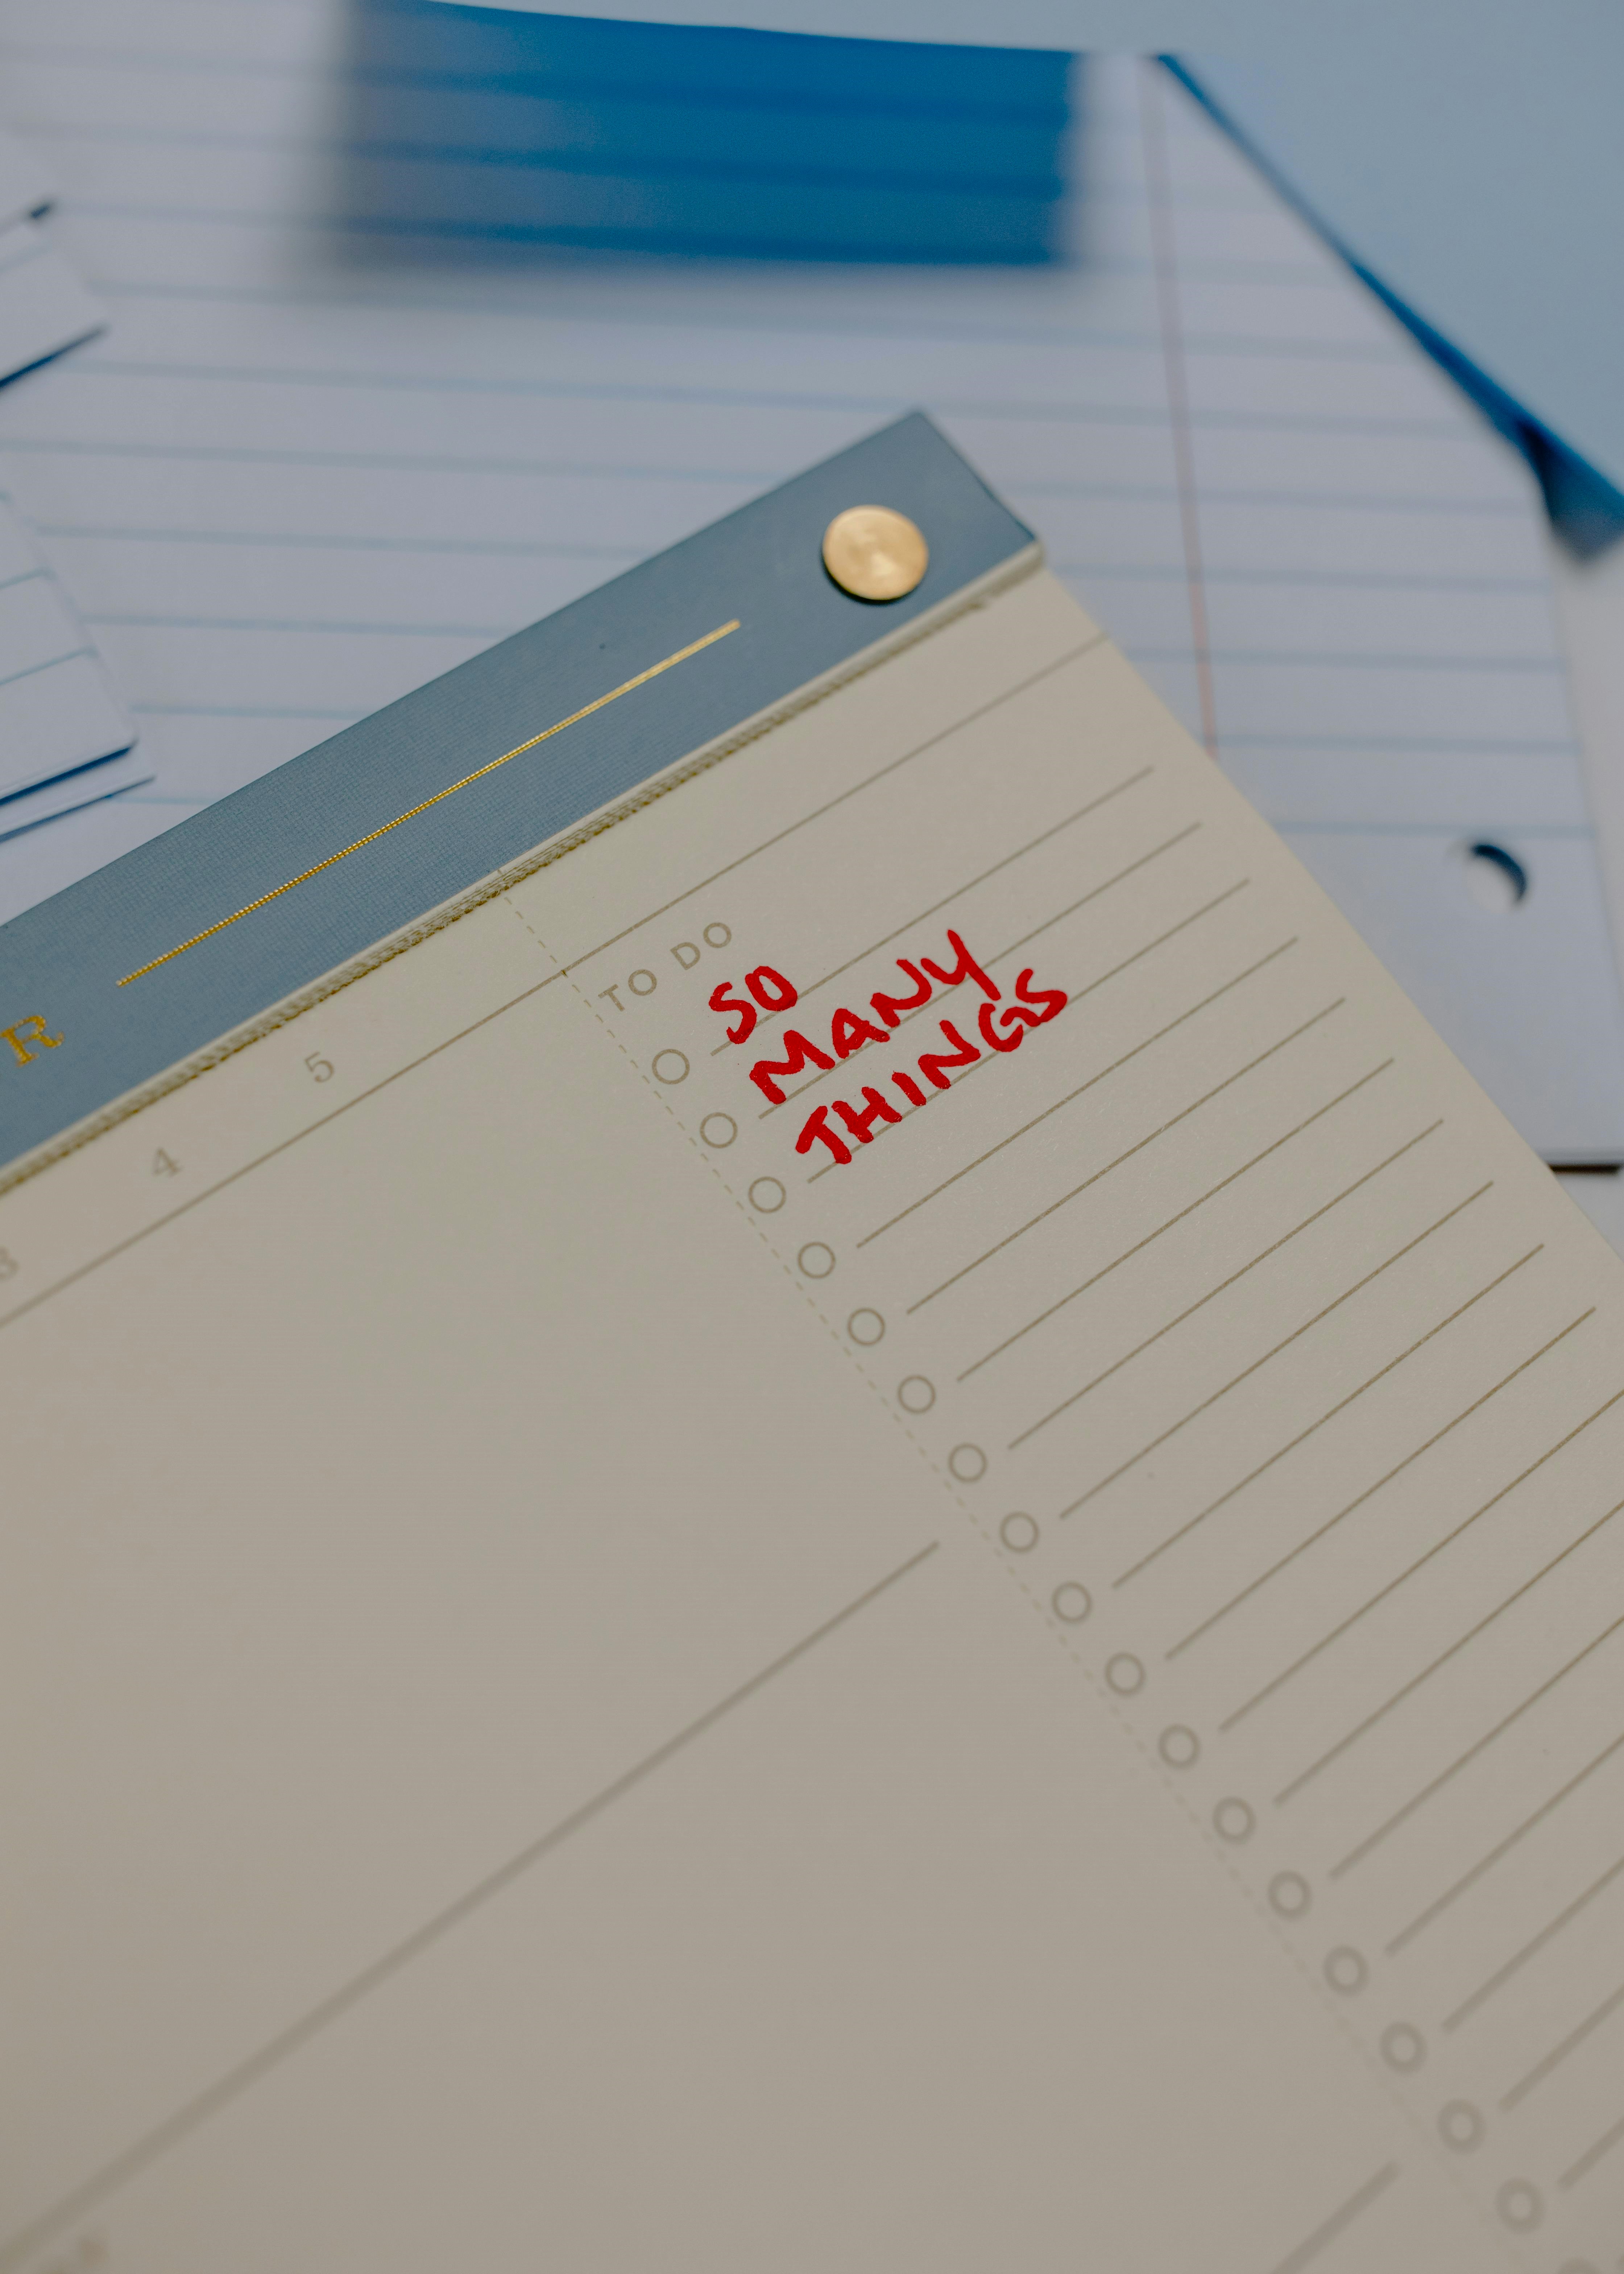 R
3
4
5
TO DO
SO
MANY
THINGS